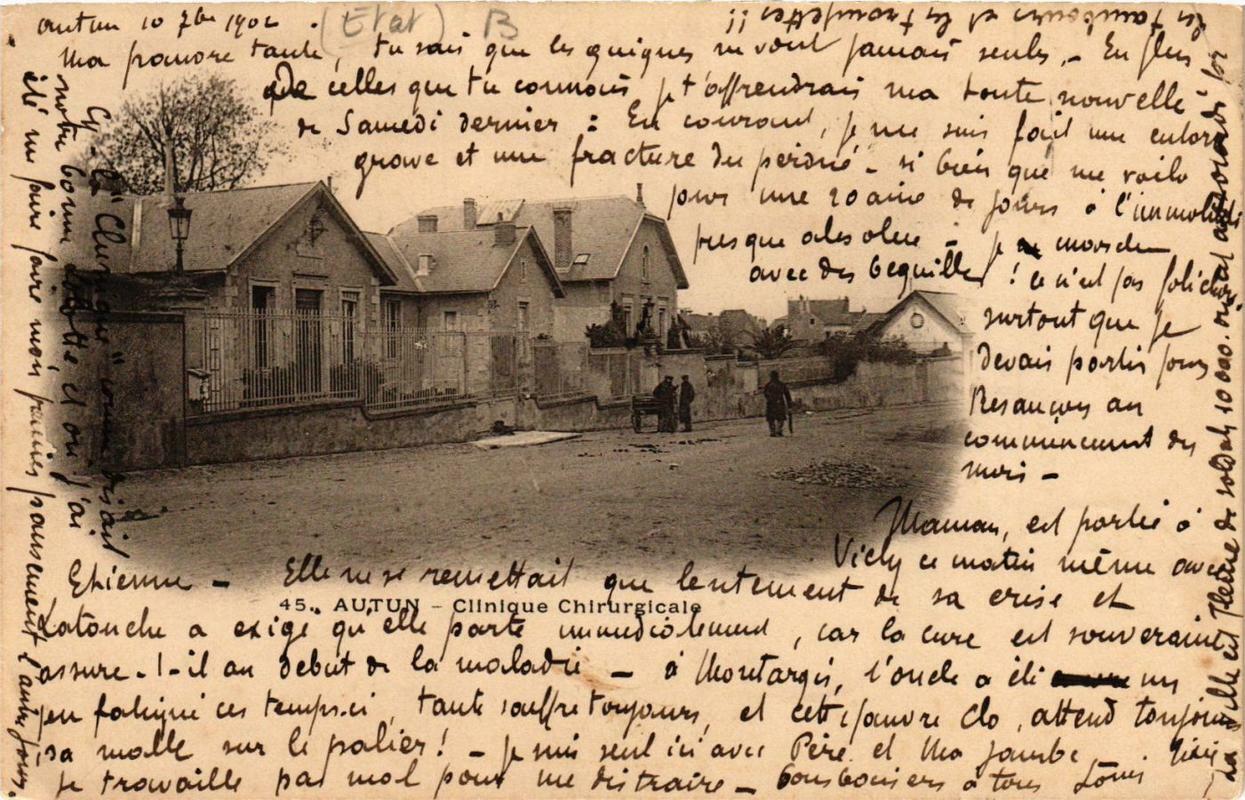 autun 10 7bre 1902 (Etat) B
Ma pauvre tante, tu sais que les guignes ne vont jamais seules, - En plus
de celles que tu connais je t'offrendrais ma toute nouvelle
de Samedi dernier : En courant, je me suis fait une entorse
grave et une fracture du peroné - si bien que me voila
pour une 20aine de jours à l'immobilité
presque absolue - je marche
avec des bequilles ! ce n'est pas folichon
surtout que je
devais partir pour
Besançon au
commencement du
mois -
Maman, est partie à
Vichy ce matin même avec
Etienne - Elle ne se remettait que lentement de sa crise et
45. AUTUN - Clinique Chirurgicale
Latouche a exigé qu'elle parte immédiatement, car la cure est souveraine
assure-t-il au début de la maladie - à Montargis, l'oncle a été un
peu fatigué ces temps-ci, tante souffre toujours, et cette pauvre Clo, attend toujours
sa malle sur le palier ! - je suis seul ici avec Père et Ma jambe
je travaille pas mal pour me distraire - bons baisers à tous Louis
Ci-g. la "Clinique" comme disait
notre bonne et où j'ai
été me faire faire mon premier pansement l'autre jour.
La ville est pleine de soldats 10000
les tambours et les trompettes !!